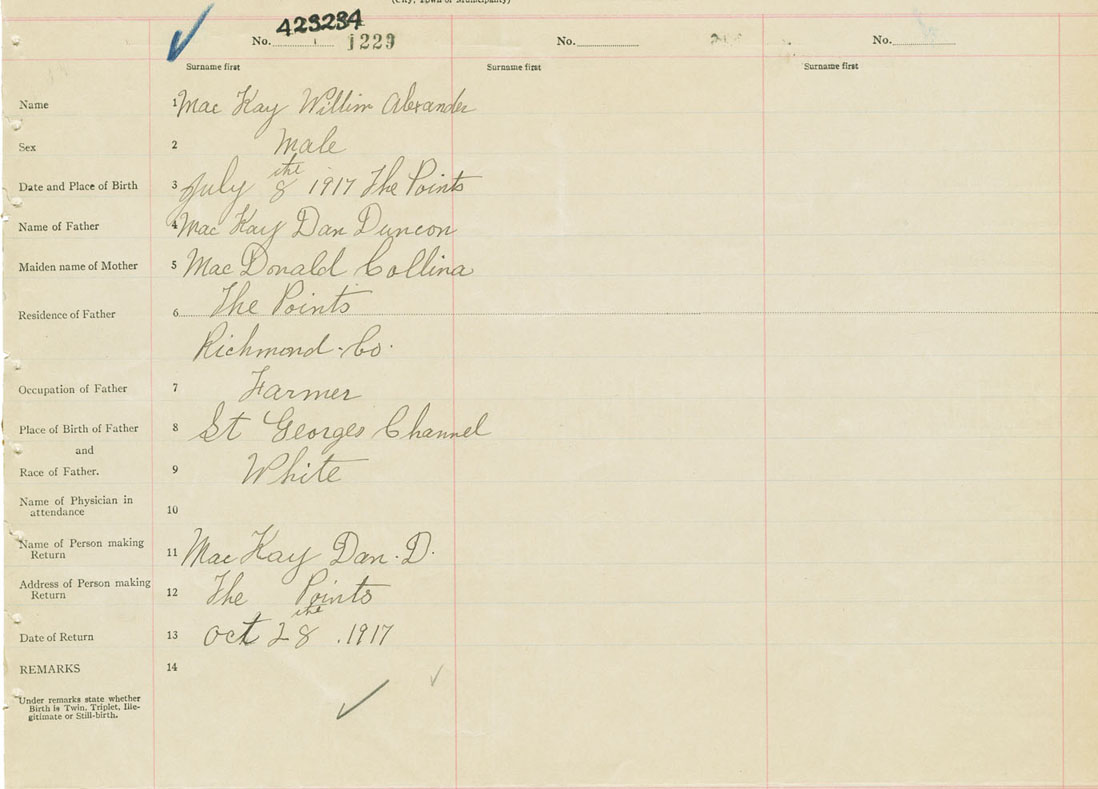 (City, Town or Municipality)
423234
No. 1229 No. No.
Surname first Surname first Surname first
Name 1 Mac Kay Willim Alexander
Sex 2 Male
Date and Place of Birth 3 July 8 the 1917 The Points
Name of Father 4 Mac Kay Dan Duncon
Maiden name of Mother 5 Mac Donald Collina
Residence of Father 6 The Points
Richmond. Co.
Occupation of Father 7 Farmer
Place of Birth of Father 8 St Georges Channel
and
Race of Father. 9 White
Name of Physician in
attendance 10
Name of Person making
Return 11 Mac Kay Dan. D.
Address of Person making
Return 12 The Points
Date of Return 13 Oct 28 the . 1917
REMARKS 14
Under remarks state whether
Birth is Twin, Triplet, Ille-
gitimate or Still-birth.